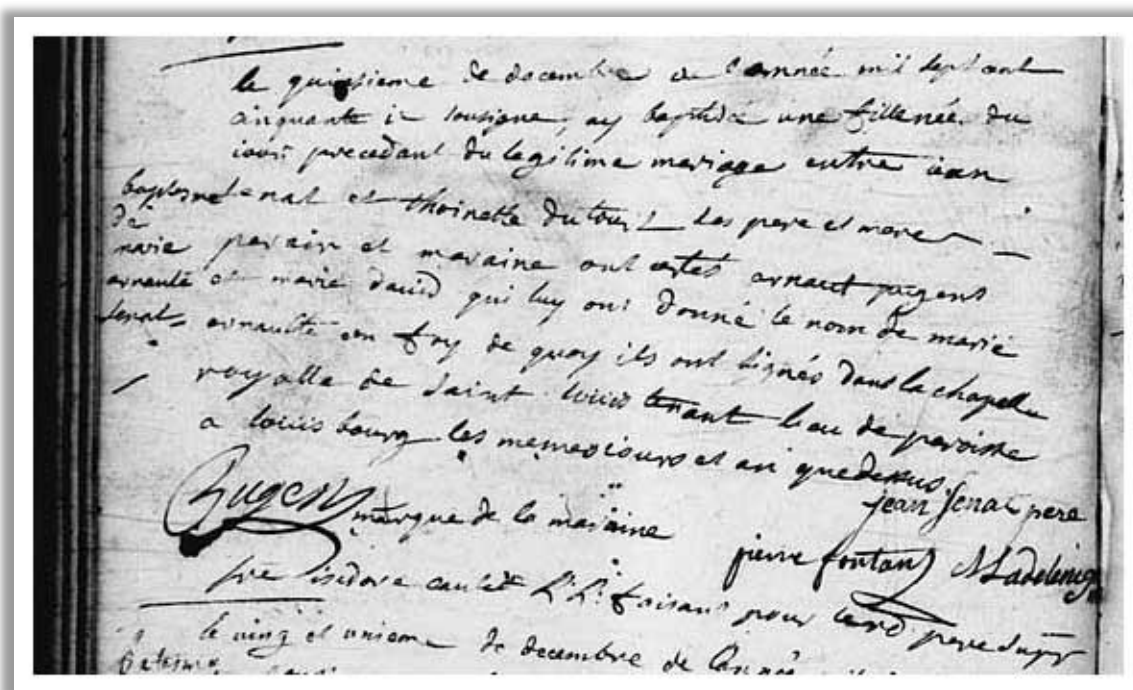 le quinsieme de decembre de l'année mil sept cent
cinquante ie sousigne, ay baptisée une fille née du
iour precedant du legitime mariage entre iean
baptesme
de
marie
arnaulte
senat
senat et thoinette dutouril ses pere et mere
parain et maraine ont estés arnaut pugens
et marie david qui luy ont donné le nom de marie
arnaulte en foy de quoy ils ont signés dans la chapelle
royalle de saint louis tenant lieu de paroisse
a louis bourg les memes iours et an que dessus
jean senat pere
Pugens marque de la maraine
pierre fontan
fre isidore caulet faisant pour le rd. pere
le ving et unieme de decembre de l'année